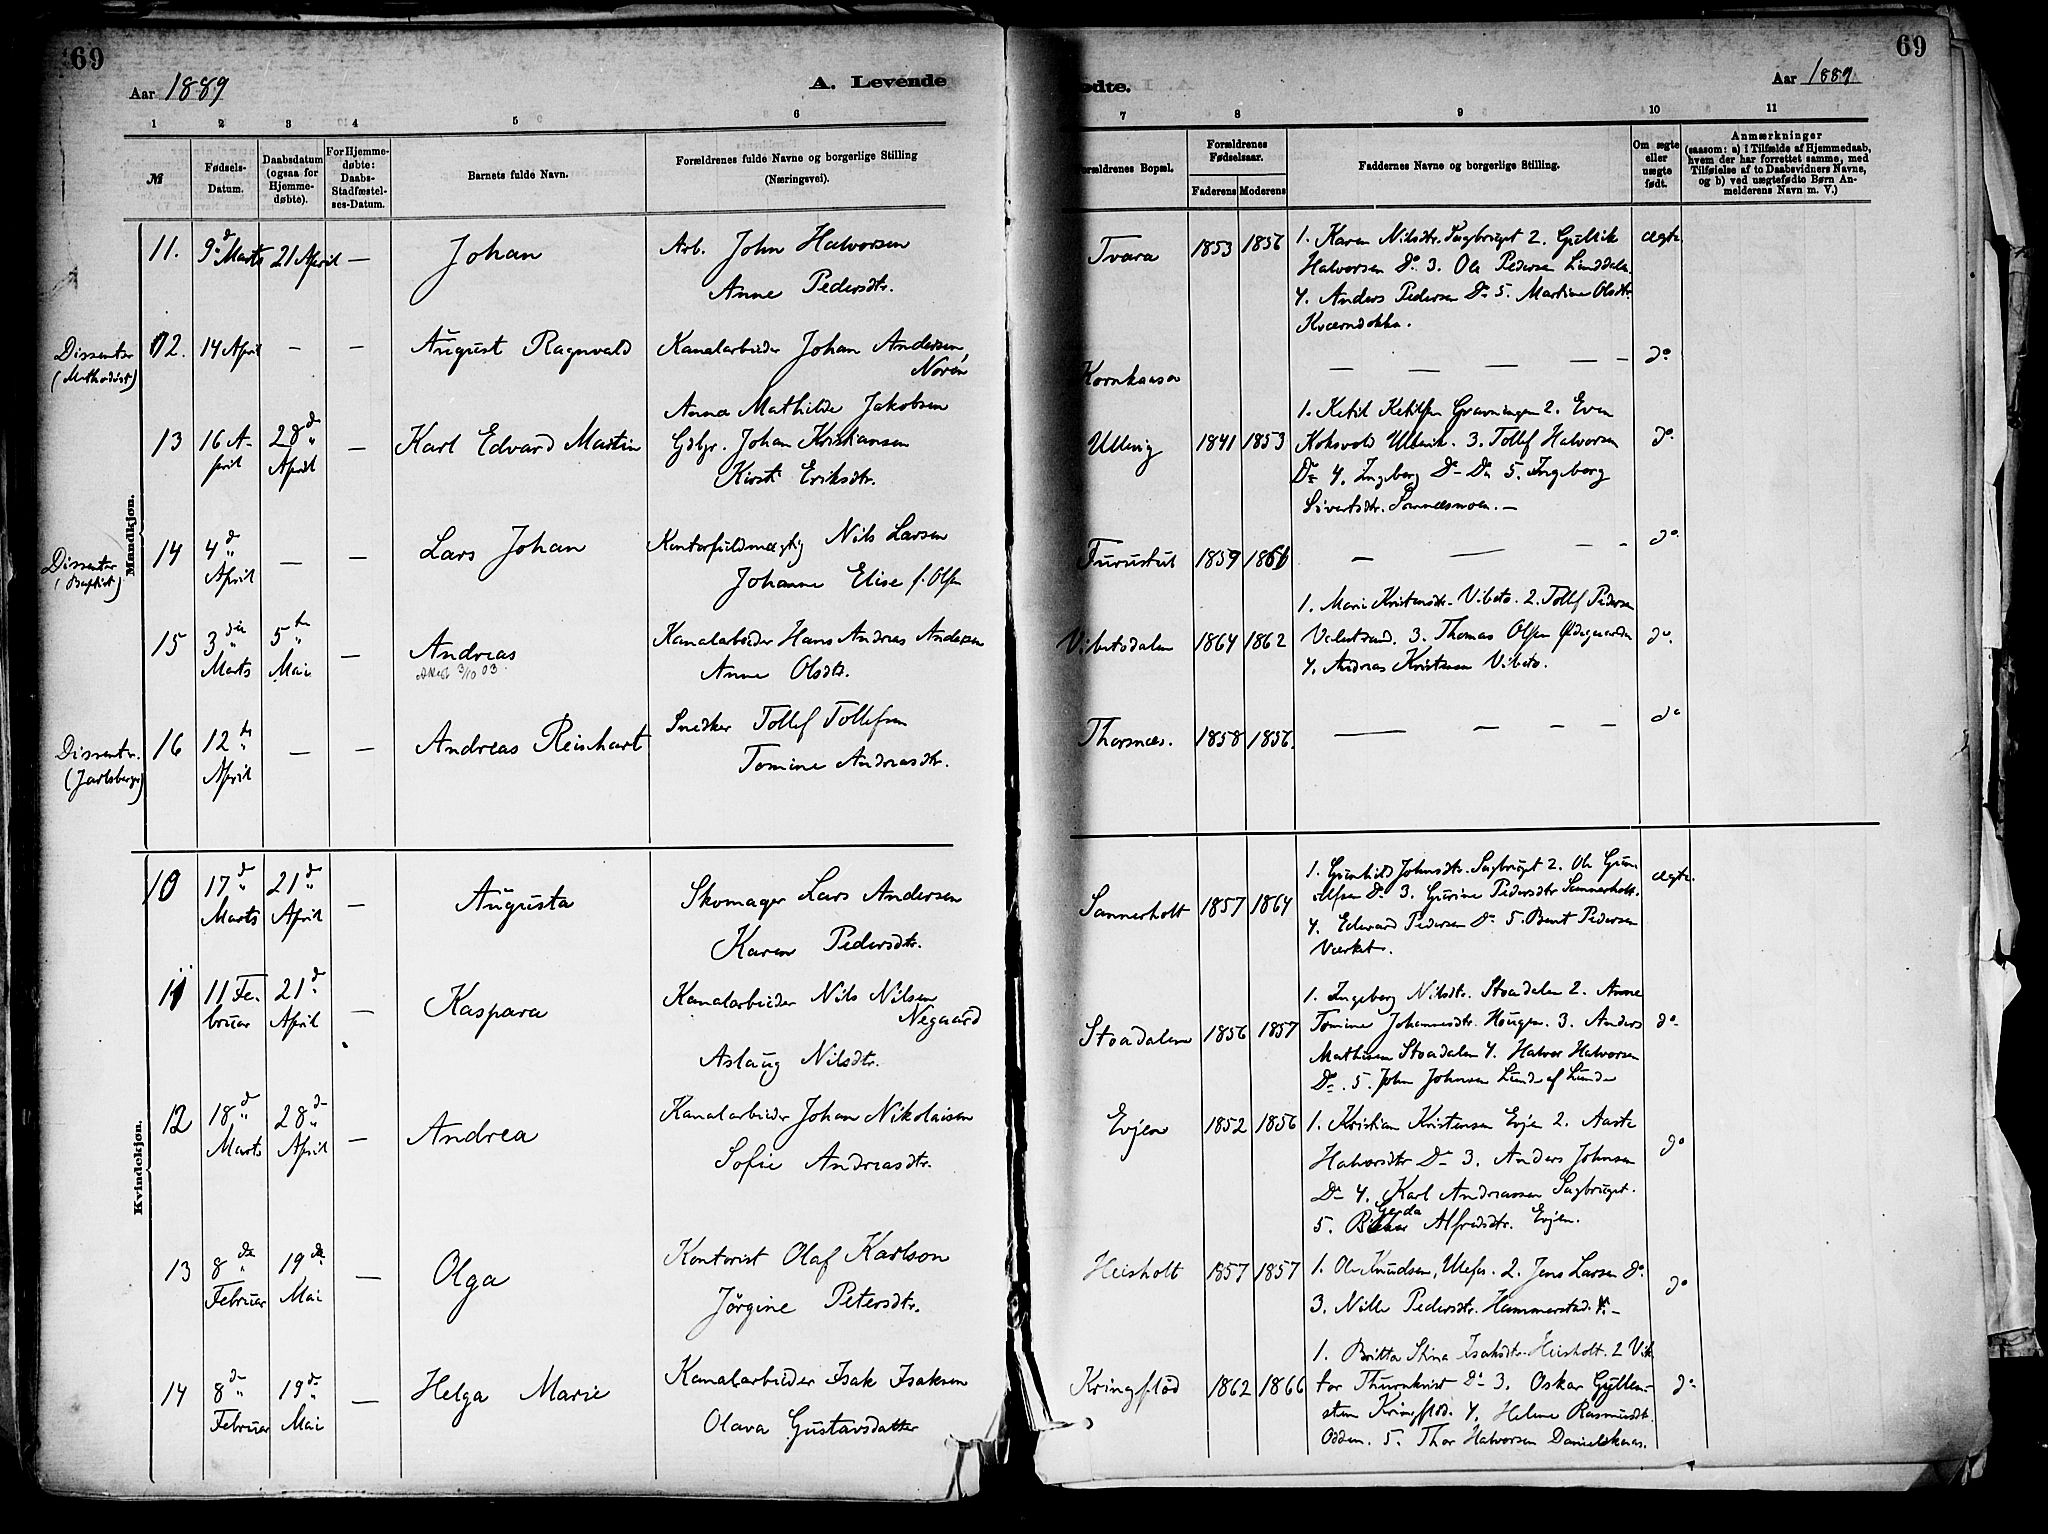 69
69
Aar 1889
A. Levende
ødte.
Aar 1889
1 2 3 4 5 6 7 8 9 10 11
№
Fødsels-
Datum.
Daabsdatum
(ogsaa for
Hjemme-
døbte).
For Hjemme-
døbte:
Daabs-
Stadfæstel-
ses-Datum.
Barnets fulde Navn.
Forældrenes fulde Navne og borgerlige Stilling
(Næringsvei).
orældrenes Bopæl.
Forældrenes
Fødselsaar.
Faderens Moderens
Faddernes Navne og borgerlige Stilling.
Om ægte
eller
uægte
født.
Anmærkninger
(saasom: a) i Tilfælde af Hjemmedaab,
hvem der har forrettet samme, med
Tilføielse af to Daabsvidners Navne,
og b) ved uægtefødte Børn An-
melderens Navn m. V.)
Mandkjøn.
11. 9d Marts 21 April — Johan
Arb. John Halvorsen
Anne Pedersdtr.
Tvara 1853 1856
1. Karen Nilsdtr. Sagbruget 2. Gullik
Halvorsen Do 3. Ole Pedersen Lunddalen.
4. Anders Pedersen Do 5. Martine Olsdtr.
Kværndokka.
ægte
Dissenter
(Methodist)
12. 14 April — — August Ragnvald
Kanalarbeider Johan Andersen
Norén
Anna Mathilde Jakobsen
Kornkaasa
— — — — —
do
13 16 A-
pril
28d
April
— Karl Edvard Martin
Gdbgr. Johan Kristiansen
Kirsti Eriksdtr.
Ullevig 1841 1853
1. Ketil Ketilsen Gravningen 2. Even
Koksvold Ullevik. 3. Tollef Halvorsen
Do 4. Ingeborg Do Do 5. Ingeborg
Sivertsdtr. Sannæsmoen. —
do.
Dissenter
(Baptist)
14 4d
April
— — Lars Johan
Kontorfuldmægtig Nils Larsen
Johanne Elise f. Olsen
Furustul 1859 1866
— — — —
do.
15 3die
Marts
5te
Mai
— Andreas
Kanalarbeider Hans Andreas Andersen
Anne Olsdtr.
3/10 03.
Vibetodalen 1864 1862
1. Marie Kristensdtr. Vibeto. 2. Tollef Pedersen
3. Thomas Olsen
4. Andreas Kristensen Vibeto.
do.
Dissenter.
(Jarlsberge)
16 12te
April
— — Andreas Reinhart
Snedker Tollef Tollefsen
Tomine Andreasdtr.
Thorsnæs. 1858 1856.
— — — — —
do
Kvindekjøn.
10 17d
Marts
21d
April
— Augusta
Skomager Lars Andersen
Karen Pedersdtr.
Sannerholt 1857 1864
1. Gunhild Johnsdtr. Sagbruget 2. Ole Gun-
ulfsen Do 3. Gurine Pedersdtr Sannerholt.
4. Edvard Pedersen Do 5. Bent Pedersen
Værket.
ægte.
11 11 Fe-
bruar
21d
April
— Kaspara
Kanalarbeider Nils Nilsen
Negaard
Aslaug Nilsdtr.
Stoadalen 1856 1857
1. Ingeborg Nilsdtr. Stoadalen 2. Anne
Tomine Johannesdtr. Haugen. 3. Anders
Mathisen Stoadalen 4. Halvor Halvorsen
Do. 5. John Johnsen Lunde af Lunde
do.
12 18d
Marts
28d
April
— Andrea
Kanalarbeider Johan Nikolaisen
Sofie Andreasdtr.
Evjen 1852 1856
1. Kristian Kristensen Evjen 2. Aaste
Halvorsdtr Do 3. Anders Johnsen
Do 4. Karl Andreassen Sagbruget.
5. Gerda Alfredsdtr. Evjen.
do
13 8de
Februar
19de
Mai
— Olga
Kontorist Olaf Karlson
Jørgine Petersdtr.
Heisholt 1857 1857
1. Ole Knudsen, Ulefos. 2. Jens Larsen do.
3. Nille Pedersdtr. Hammerstad. —
do
14 8de
Februar
19de
Mai
— Helga Marie
Kanalarbeider Isak Isaksen
Olava Gustavsdatter
Kringflod 1862 1866
1. Britta Stina Isaksdtr. Heisholt. 2 Vik-
tor Thurnkvist Do 3. Oskar Gyllen-
sten Kringflod. 4. Helene Rasmusdtr.
Odden. 5. Thor Halvorsen Danielskaas.
do